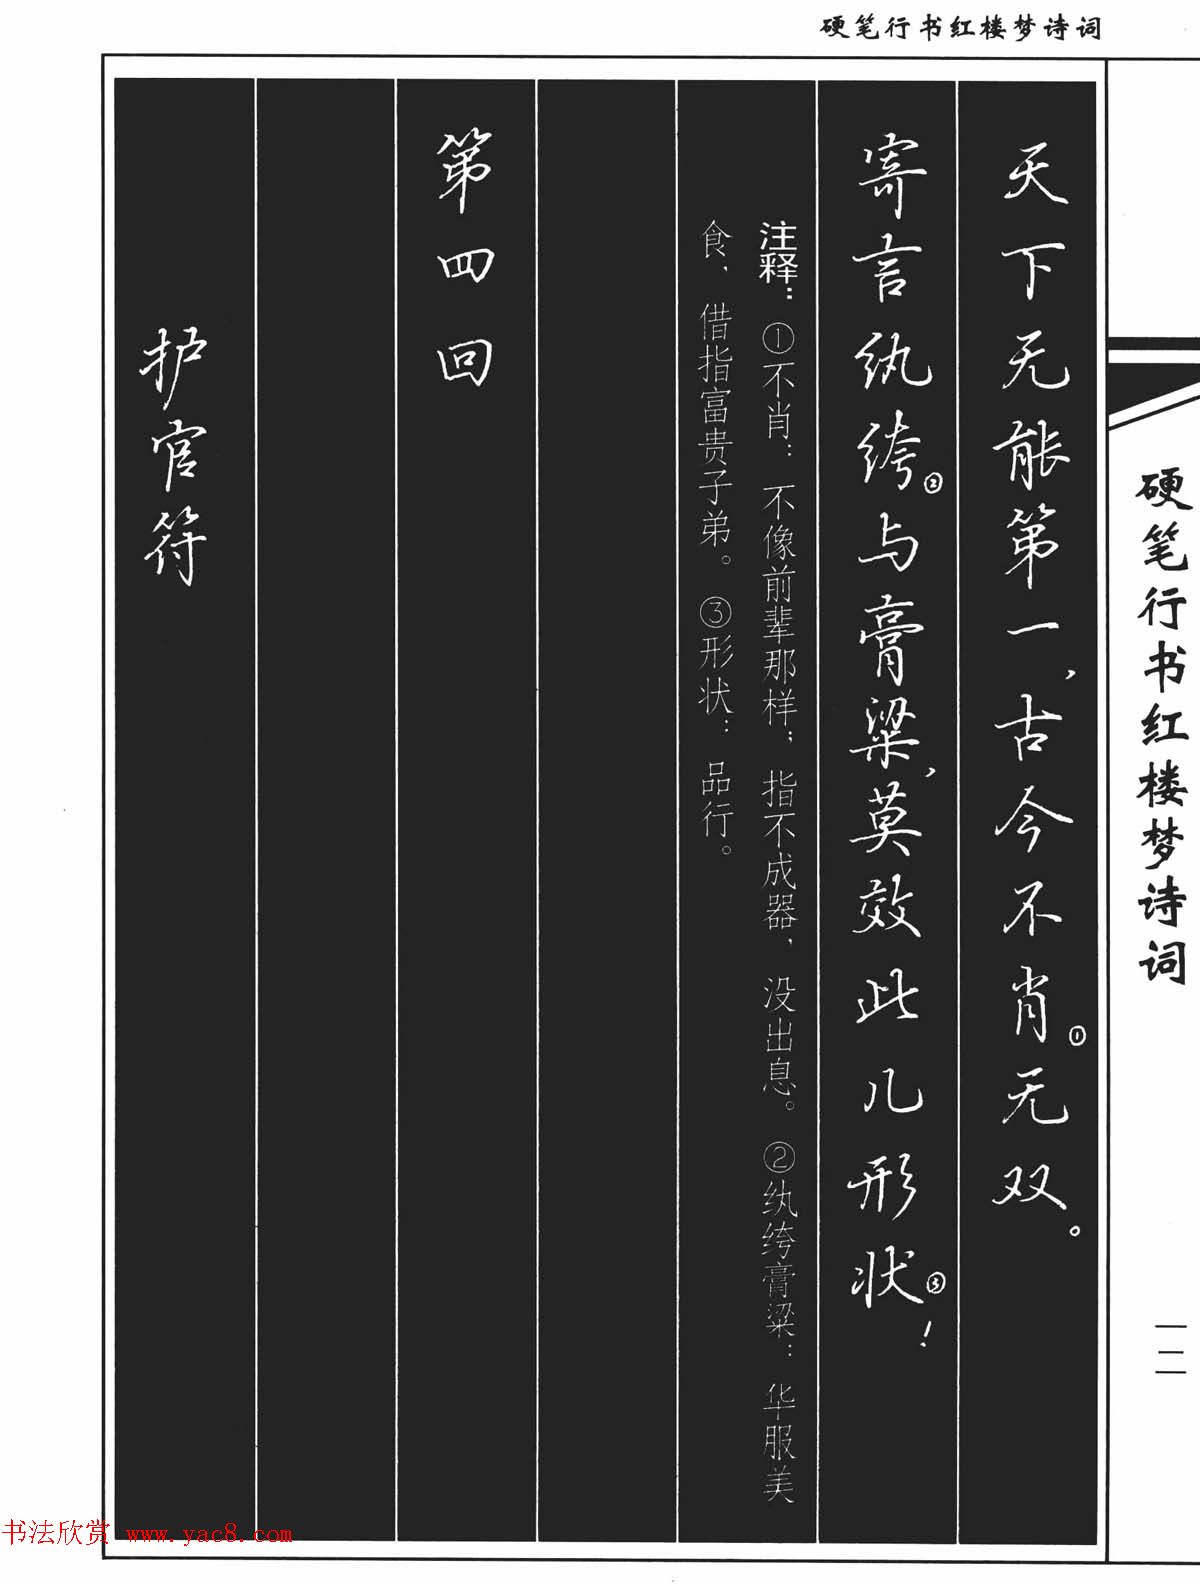 硬笔行书红楼梦诗词
硬笔行书红楼梦诗词
一二
天下无能第一,古今不肖①无双。
寄言纨绔②与膏粱,莫效此儿形状③!
注释：①不肖：不像前辈那样；指不成器，没出息。②纨绔膏粱：华服美
食，借指富贵子弟。③形状：品行。
第四回
护官符
书法欣赏 www.yac8.com